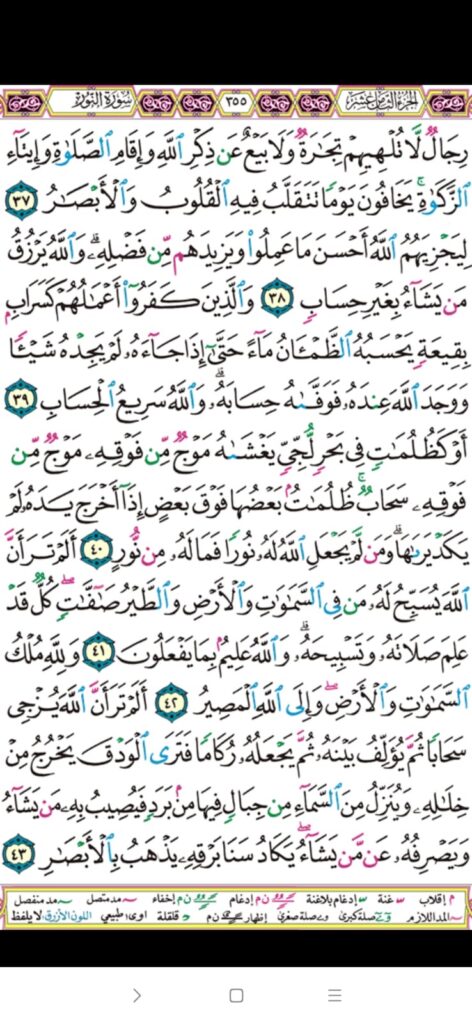 الجزء الثامن عشر ٣٥٥ سورة النور
رِجَالٌ لَّا تُلْهِيهِمْ تِجَٰرَةٌ وَلَا بَيْعٌ عَن ذِكْرِ ٱللَّهِ وَإِقَامِ ٱلصَّلَوٰةِ وَإِيتَآءِ
ٱلزَّكَوٰةِ يَخَافُونَ يَوْمًا تَتَقَلَّبُ فِيهِ ٱلْقُلُوبُ وَٱلْأَبْصَٰرُ ٣٧
لِيَجْزِيَهُمُ ٱللَّهُ أَحْسَنَ مَا عَمِلُوا۟ وَيَزِيدَهُم مِّن فَضْلِهِۦ ۗ وَٱللَّهُ يَرْزُقُ
مَن يَشَآءُ بِغَيْرِ حِسَابٍ ٣٨ وَٱلَّذِينَ كَفَرُوٓا۟ أَعْمَٰلُهُمْ كَسَرَابٍۭ
بِقِيعَةٍ يَحْسَبُهُ ٱلظَّمْـَٔانُ مَآءً حَتَّىٰٓ إِذَا جَآءَهُۥ لَمْ يَجِدْهُ شَيْـًٔا
وَوَجَدَ ٱللَّهَ عِندَهُۥ فَوَفَّىٰهُ حِسَابَهُۥ ۗ وَٱللَّهُ سَرِيعُ ٱلْحِسَابِ ٣٩
أَوْ كَظُلُمَٰتٍ فِى بَحْرٍ لُّجِّىٍّ يَغْشَىٰهُ مَوْجٌ مِّن فَوْقِهِۦ مَوْجٌ مِّن
فَوْقِهِۦ سَحَابٌ ۚ ظُلُمَٰتٌۢ بَعْضُهَا فَوْقَ بَعْضٍ إِذَآ أَخْرَجَ يَدَهُۥ لَمْ
يَكَدْ يَرَىٰهَا ۗ وَمَن لَّمْ يَجْعَلِ ٱللَّهُ لَهُۥ نُورًا فَمَا لَهُۥ مِن نُّورٍ ٤٠ أَلَمْ تَرَ أَنَّ
ٱللَّهَ يُسَبِّحُ لَهُۥ مَن فِى ٱلسَّمَٰوَٰتِ وَٱلْأَرْضِ وَٱلطَّيْرُ صَٰٓفَّٰتٍ ۖ كُلٌّ قَدْ
عَلِمَ صَلَاتَهُۥ وَتَسْبِيحَهُۥ ۗ وَٱللَّهُ عَلِيمٌۢ بِمَا يَفْعَلُونَ ٤١ وَلِلَّهِ مُلْكُ
ٱلسَّمَٰوَٰتِ وَٱلْأَرْضِ ۖ وَإِلَى ٱللَّهِ ٱلْمَصِيرُ ٤٢ أَلَمْ تَرَ أَنَّ ٱللَّهَ يُزْجِى
سَحَابًا ثُمَّ يُؤَلِّفُ بَيْنَهُۥ ثُمَّ يَجْعَلُهُۥ رُكَامًا فَتَرَى ٱلْوَدْقَ يَخْرُجُ مِنْ
خِلَٰلِهِۦ وَيُنَزِّلُ مِنَ ٱلسَّمَآءِ مِن جِبَالٍ فِيهَا مِنۢ بَرَدٍ فَيُصِيبُ بِهِۦ مَن يَشَآءُ
وَيَصْرِفُهُۥ عَن مَّن يَشَآءُ ۖ يَكَادُ سَنَا بَرْقِهِۦ يَذْهَبُ بِٱلْأَبْصَٰرِ ٤٣
م إقلاب غنة إدغام بلاغنة ن م إدغام ن م إخفاء مد متصل مد منفصل
المد اللازم صلة كبرى صلة صغرى إظهار ن م قلقلة اوى طبيعي اللون الأزرق لا يلفظ